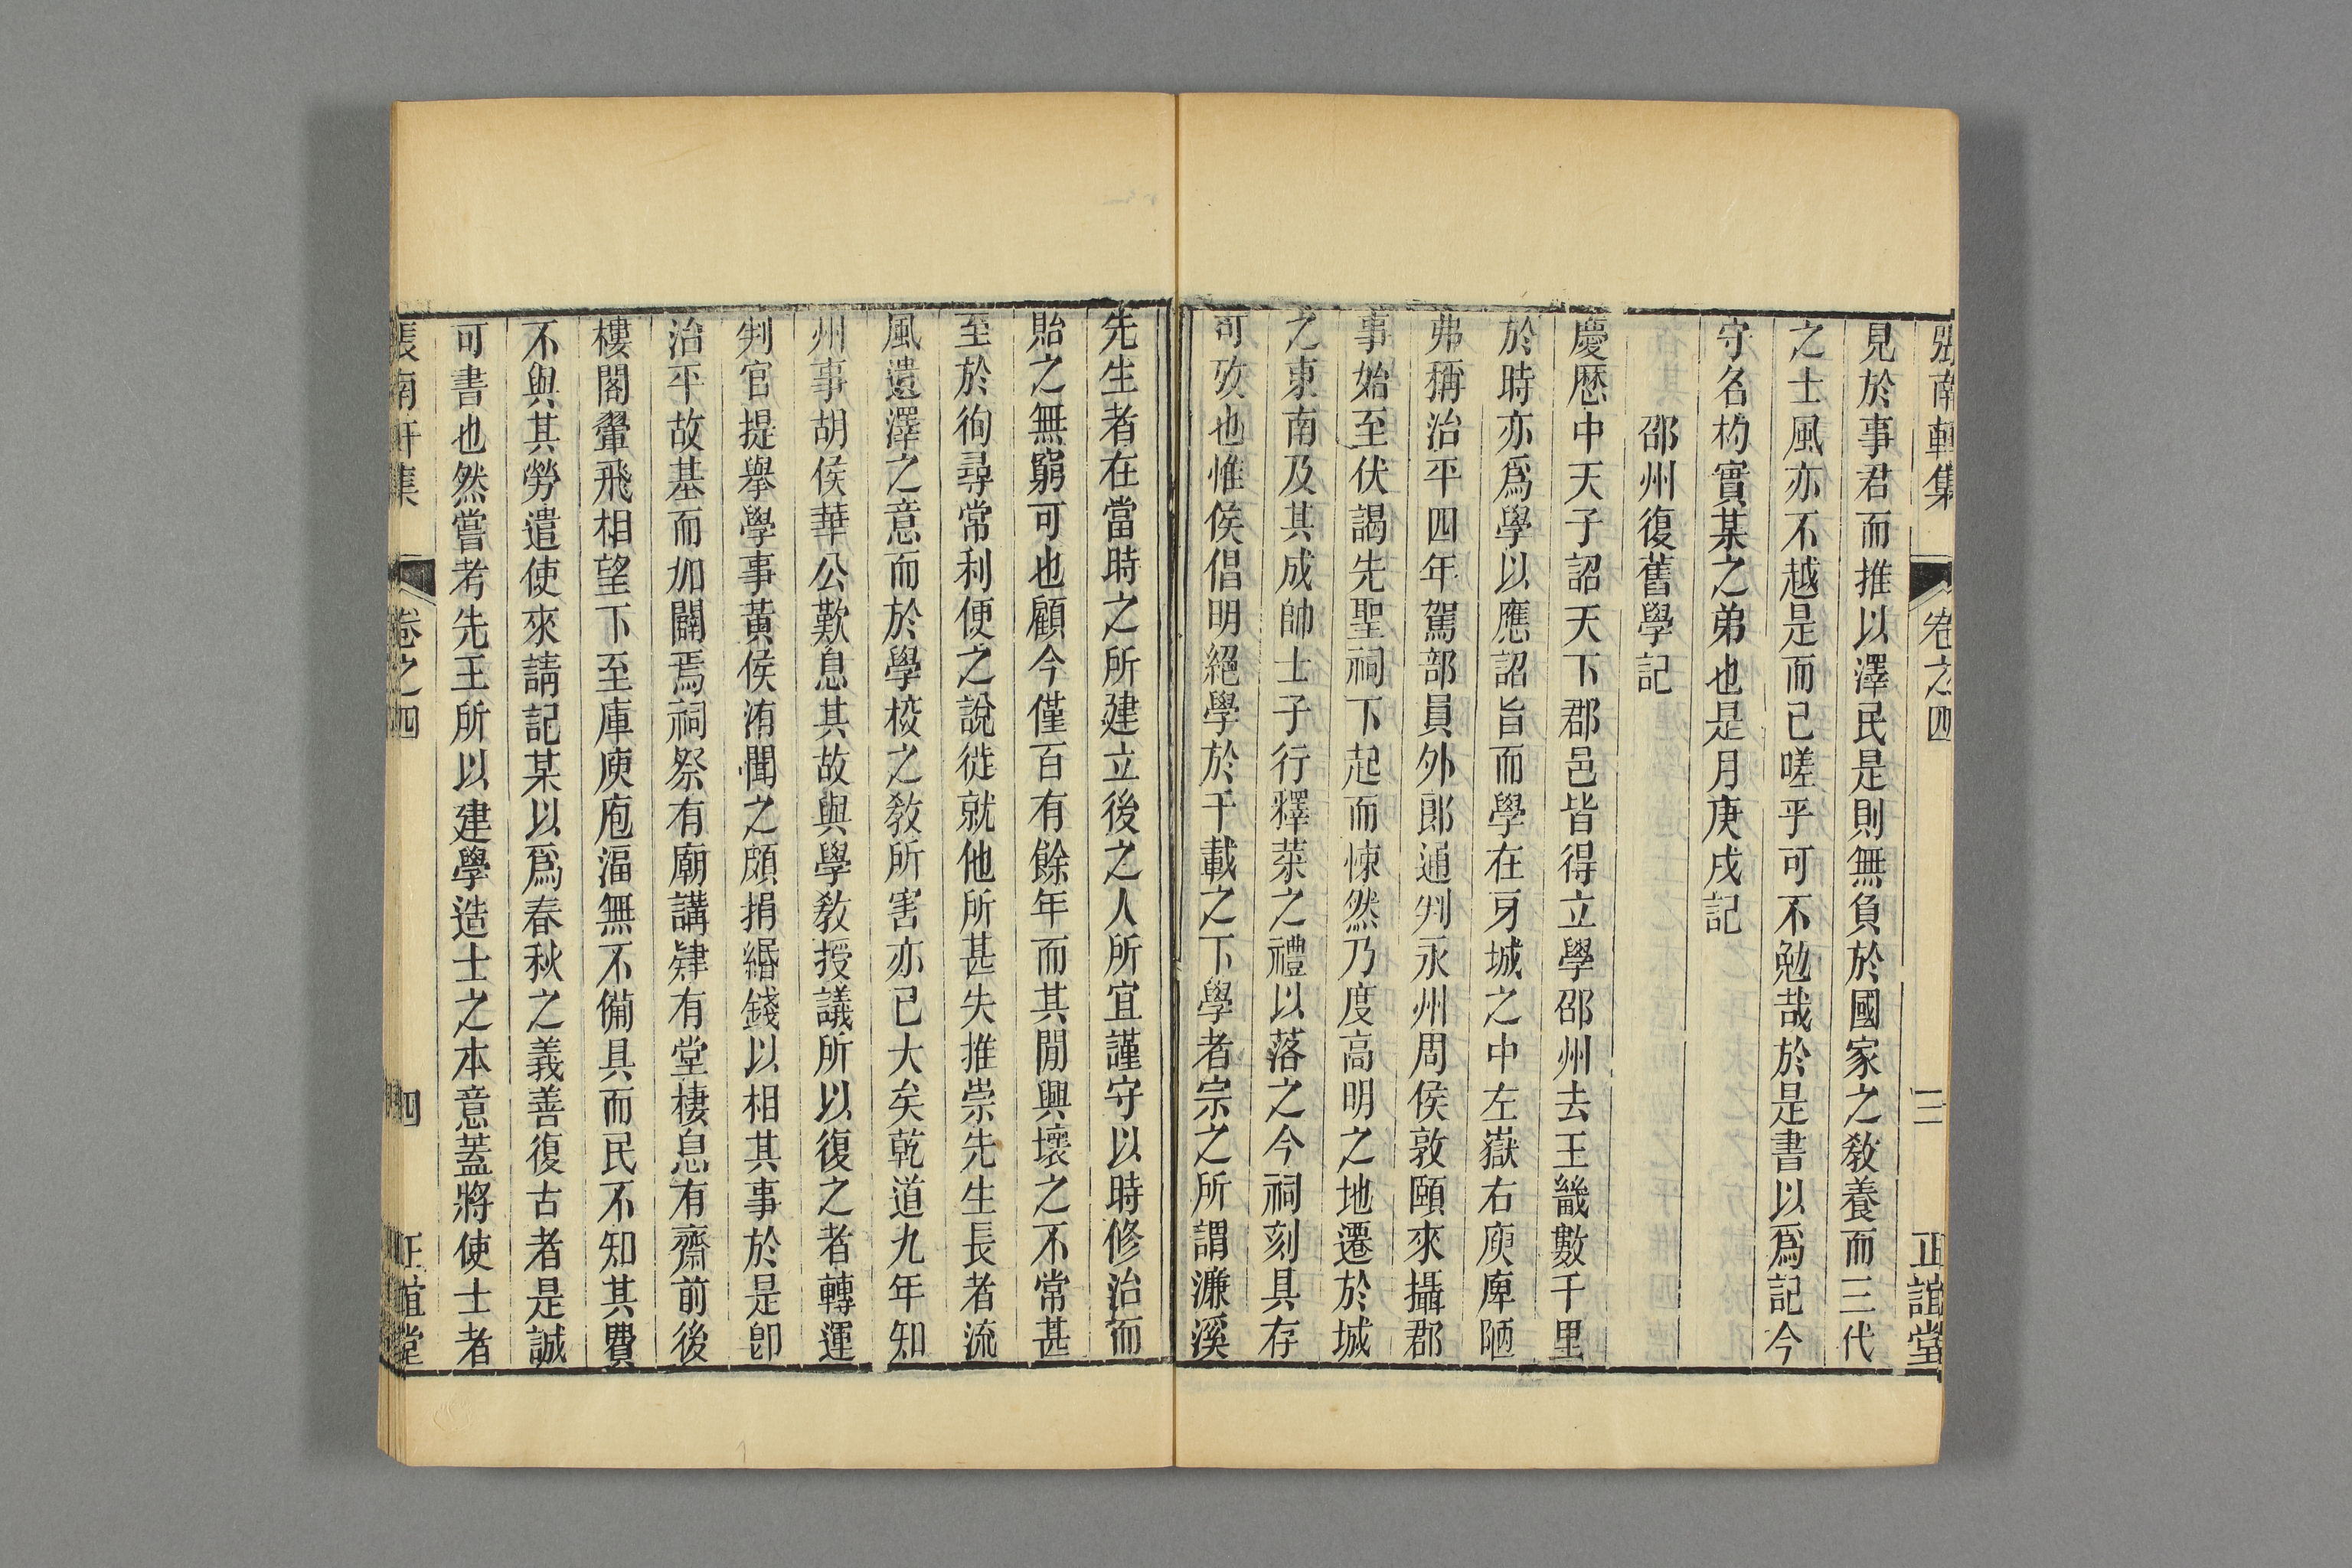 張南軒集 卷之四 三 正誼堂
見於事君而推以澤民是則無負於國家之敎養而三代
之士風亦不越是而已嗟乎可不勉哉於是書以爲記今
守名杓實某之弟也是月庚戌記
邵州復舊學記
慶歴中天子詔天下郡邑皆得立學邵州去王畿數千里
於時亦爲學以應詔旨而學在牙城之中左嶽右庾庳陋
弗稱治平四年駕部員外郎通判永州周侯敦頤來攝郡
事始至伏謁先聖祠下起而悚然乃度高明之地遷於城
之東南及其成帥士子行釋菜之禮以落之今祠刻具存
可攷也惟侯倡明絕學於千載之下學者宗之所謂濂溪
先生者在當時之所建立後之人所宜謹守以時修治而
貽之無窮可也顧今僅百有餘年而其閒興壞之不常甚
至於徇尋常利便之說徙就他所甚失推崇先生長者流
風遺澤之意而於學校之敎所害亦已大矣乾道九年知
州事胡侯華公歎息其故與學敎授議所以復之者轉運
判官提舉學事黃侯洧聞之頗捐緡錢以相其事於是卽
治平故基而加闢焉祠祭有廟講肄有堂棲息有齋前後
樓閣翬飛相望下至庫庾庖湢無不備具而民不知其費
不與其勞遣使來請記某以爲春秋之義善復古者是誠
可書也然嘗考先王所以建學造士之本意蓋將使士者
張南軒集 卷之四 四 正誼堂